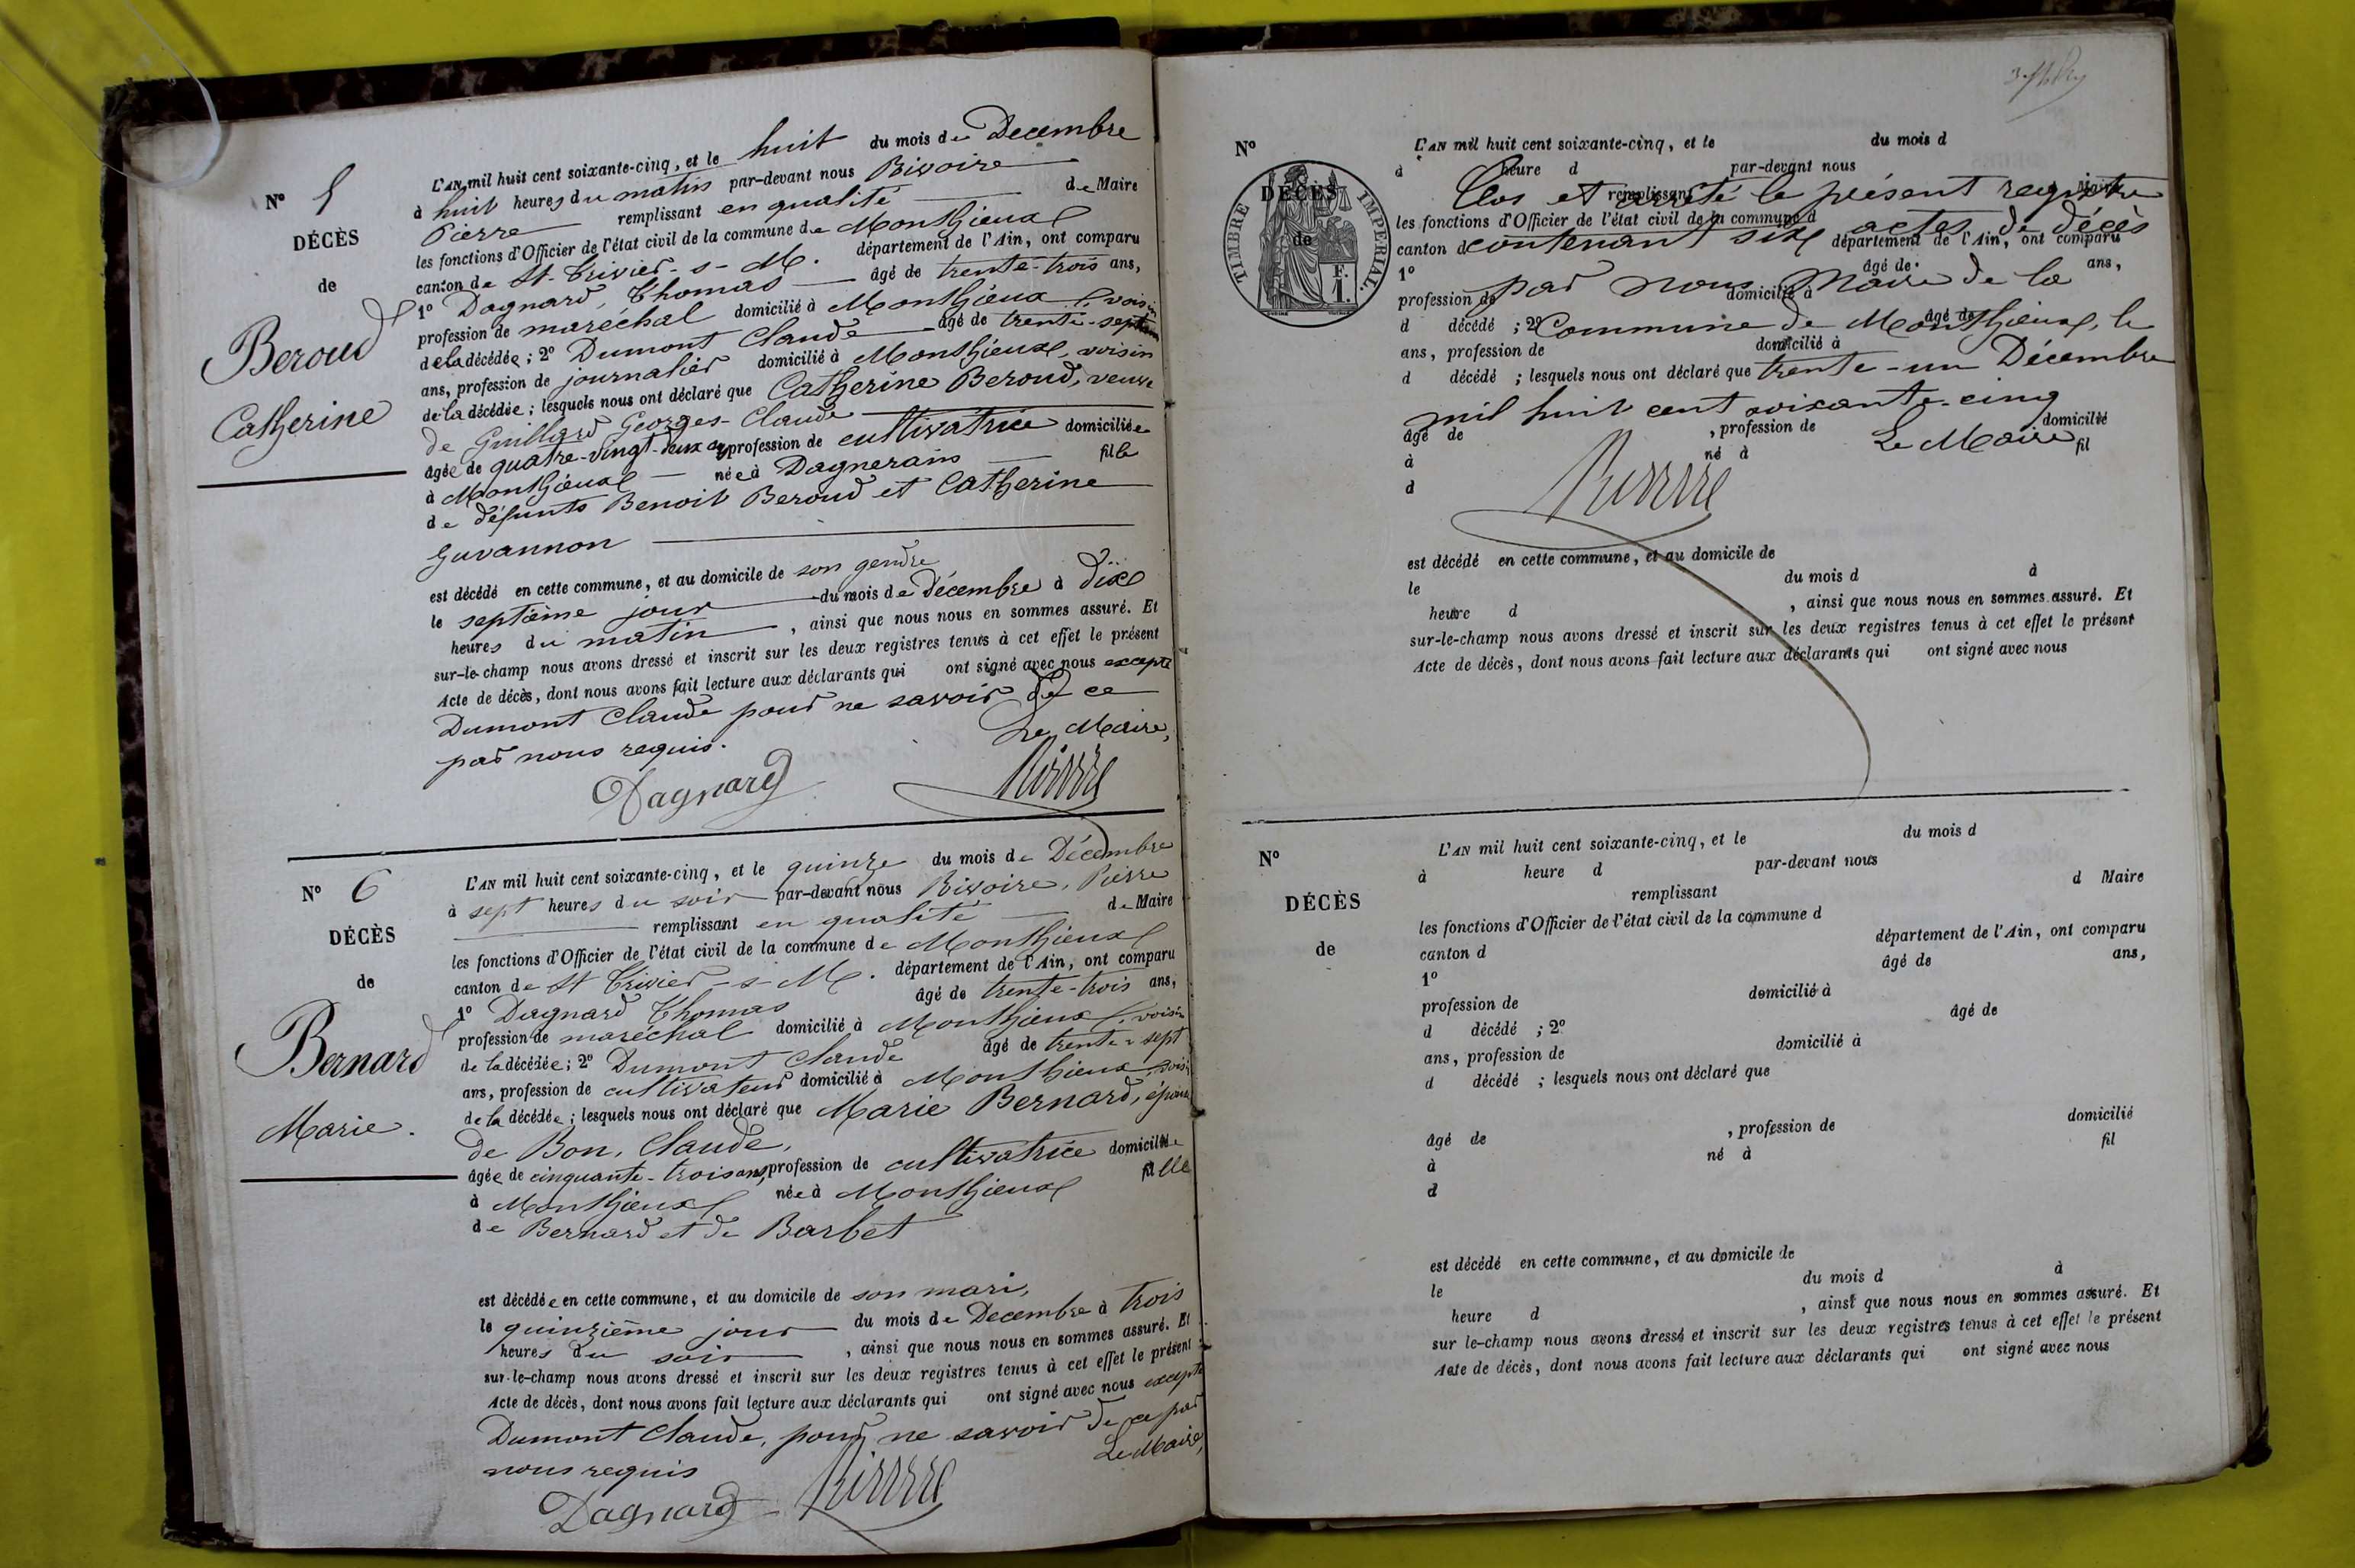 N° 5
DÉCÈS
de
Beroud
Catherine
L'AN mil huit cent soixante-cinq, et le huit du mois de Decembre
à huit heures du matin par-devant nous Bivoire
Pierre remplissant en qualité de Maire
les fonctions d'Officier de l'état civil de la commune de Monthieux
canton de St-Trivier-s-M. département de l'Ain, ont comparu
1° Dagnard, Thomas âgé de trente-trois ans,
profession de maréchal domicilié à Monthieux, voisin
de la décédée; 2° Dumont Claude âgé de trente-sept
ans, profession de journalier domicilié à Monthieux, voisin
de la décédée; lesquels nous ont déclaré que Catherine Beroud, veuve
de Guillard Georges-Claude
âgée de quatre-vingt-deux ans profession de cultivatrice domiciliée
à Monthieux née à Dagnerains fille
de défunts Benoit Beroud et Catherine
Guvannon
est décédé en cette commune, et au domicile de son gendre
le septième jour du mois de Décembre à dix
heures du matin, ainsi que nous nous en sommes assuré. Et
sur-le-champ nous avons dressé et inscrit sur les deux registres tenus à cet effet le présent
Acte de décès, dont nous avons fait lecture aux déclarants qui ont signé avec nous excepté
Dumont Claude pour ne savoir de ce
par nous requis. Le Maire,
Dagnard Bivoire
N° 6
DÉCÈS
de
Bernard
Marie.
L'AN mil huit cent soixante-cinq, et le quinze du mois de Décembre
à sept heures du soir par-devant nous Bivoire, Pierre
remplissant en qualité de Maire
les fonctions d'Officier de l'état civil de la commune de Monthieux
canton de St Trivier-s-M. département de l'Ain, ont comparu
1° Dagnard Thomas âgé de trente-trois ans,
profession de maréchal domicilié à Monthieux, voisin
de la décédée; 2° Dumont Claude âgé de trente-sept
ans, profession de cultivateur domicilié à Monthieux, voisin
de la décédée; lesquels nous ont déclaré que Marie Bernard, épouse
de Bon, Claude,
âgée de cinquante-trois ans, profession de cultivatrice domiciliée
à Monthieux née à Monthieux fille
de Bernard et de Barbet
est décédée en cette commune, et au domicile de son mari,
le quinzième jour du mois de Decembre à trois
heures du soir, ainsi que nous nous en sommes assuré. Et
sur-le-champ nous avons dressé et inscrit sur les deux registres tenus à cet effet le présent
Acte de décès, dont nous avons fait lecture aux déclarants qui ont signé avec nous excepté
Dumont Claude, pour ne savoir de ce par
nous requis Le Maire,
Dagnard Bivoire
N°
DÉCÈS
de
TIMBRE IMPERIAL
F.
1.
L'AN mil huit cent soixante-cinq, et le du mois d
à heure d par-devant nous
Clos et arrêté le présent registre
remplissant d Maire
les fonctions d'Officier de l'état civil de la commune d
contenant six actes de décès
canton d département de l'Ain, ont comparu
1° âgé de ans,
par Nous Maire de la
profession de domicilié à
d décédé ; 2° âgé de
Commune de Monthieux, le
ans, profession de domicilié à
d décédé ; lesquels nous ont déclaré que
trente-un Décembre
mil huit cent soixante-cinq
âgé de , profession de domicilié
Le Maire
à né à fil
d
Bivoire
est décédé en cette commune, et au domicile de
le du mois d à
heure d , ainsi que nous nous en sommes assuré. Et
sur-le-champ nous avons dressé et inscrit sur les deux registres tenus à cet effet le présent
Acte de décès, dont nous avons fait lecture aux déclarants qui ont signé avec nous
N°
DÉCÈS
de
L'AN mil huit cent soixante-cinq, et le du mois d
à heure d par-devant nous
remplissant d Maire
les fonctions d'Officier de l'état civil de la commune d
canton d département de l'Ain, ont comparu
1° âgé de ans,
profession de domicilié à
d décédé ; 2° âgé de
ans, profession de domicilié à
d décédé ; lesquels nous ont déclaré que
âgé de , profession de domicilié
à né à fil
d
est décédé en cette commune, et au domicile de
le du mois d à
heure d , ainsi que nous nous en sommes assuré. Et
sur le-champ nous avons dressé et inscrit sur les deux registres tenus à cet effet le présent
Acte de décès, dont nous avons fait lecture aux déclarants qui ont signé avec nous